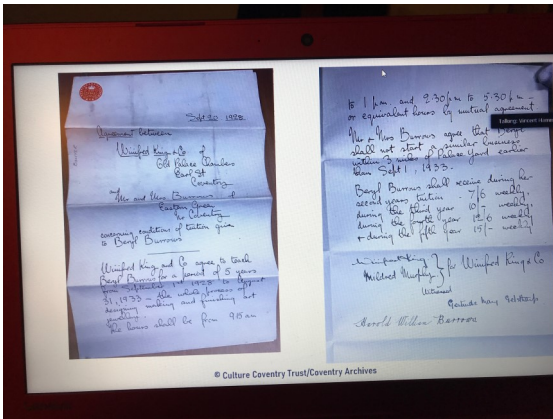 Sept 20 1928
Agreement between
Winifred King & Co of
Old Palace Chambers
Earl St
Coventry
and Mr and Mrs Burrows of
Eastern Green
Nr Coventry
concerning conditions of tuition given
to Beryl Burrows
Winifred King and Co agree to teach
Beryl Burrows for a period of 5 years
from September 1st 1928 to August
31, 1933 – the whole process of
designing making and finishing
jewellery.
The hours shall be from 9.15 am
to 1 p.m. and 2.30 p.m to 5.30 p.m –
or equivalent hours by mutual agreement
Mr & Mrs Burrows agree that Beryl
shall not start a similar business
within 3 miles of Palace Yard earlier
than Sept 1, 1933.
Beryl Burrows shall receive during her
second years tuition - 7/6 weekly,
during the third year 10/- weekly,
during the fourth year 12/6 weekly
& during the fifth year 15/- weekly
Winifred King
Mildred Murphy } for Winifred King & Co
Witnessed
Gertrude Mary
Harold William Burrows
Talking: Vincent
© Culture Coventry Trust/Coventry Archives